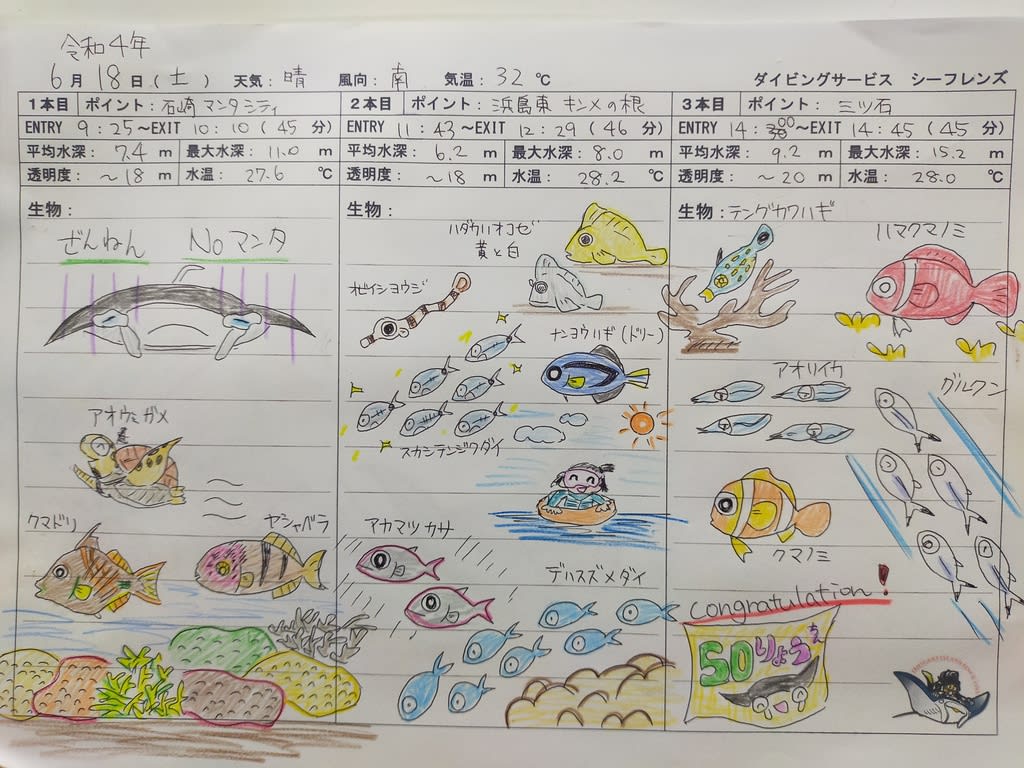 令和4年
6月18日(土) 天気:晴 風向:南 気温:32℃ ダイビングサービス シーフレンズ
1本目 ポイント:石崎 マンタシティ
ENTRY 9:25~EXIT 10:10(45分)
平均水深:7.4m 最大水深:11.0m
透明度:~18m 水温:27.6℃
生物:
ざんねん Noマンタ
アオウミガメ
クマドリ ヤシャベラ
2本目 ポイント:浜島東 キンメの根
ENTRY 11:43~EXIT 12:29(46分)
平均水深:6.2m 最大水深:8.0m
透明度:~18m 水温:28.2℃
生物:
ハダカハオコゼ
黄と白
オイランヨウジ
ナンヨウハギ(ドリー)
スカシテンジクダイ
アカマツカサ
デバスズメダイ
3本目 ポイント:三ツ石
ENTRY 14:00~EXIT 14:45(45分)
平均水深:9.2m 最大水深:15.2m
透明度:~20m 水温:28.0℃
生物:テングカワハギ
ハマクマノミ
アオリイカ
グルクン
クマノミ
congratulation!
50りょう